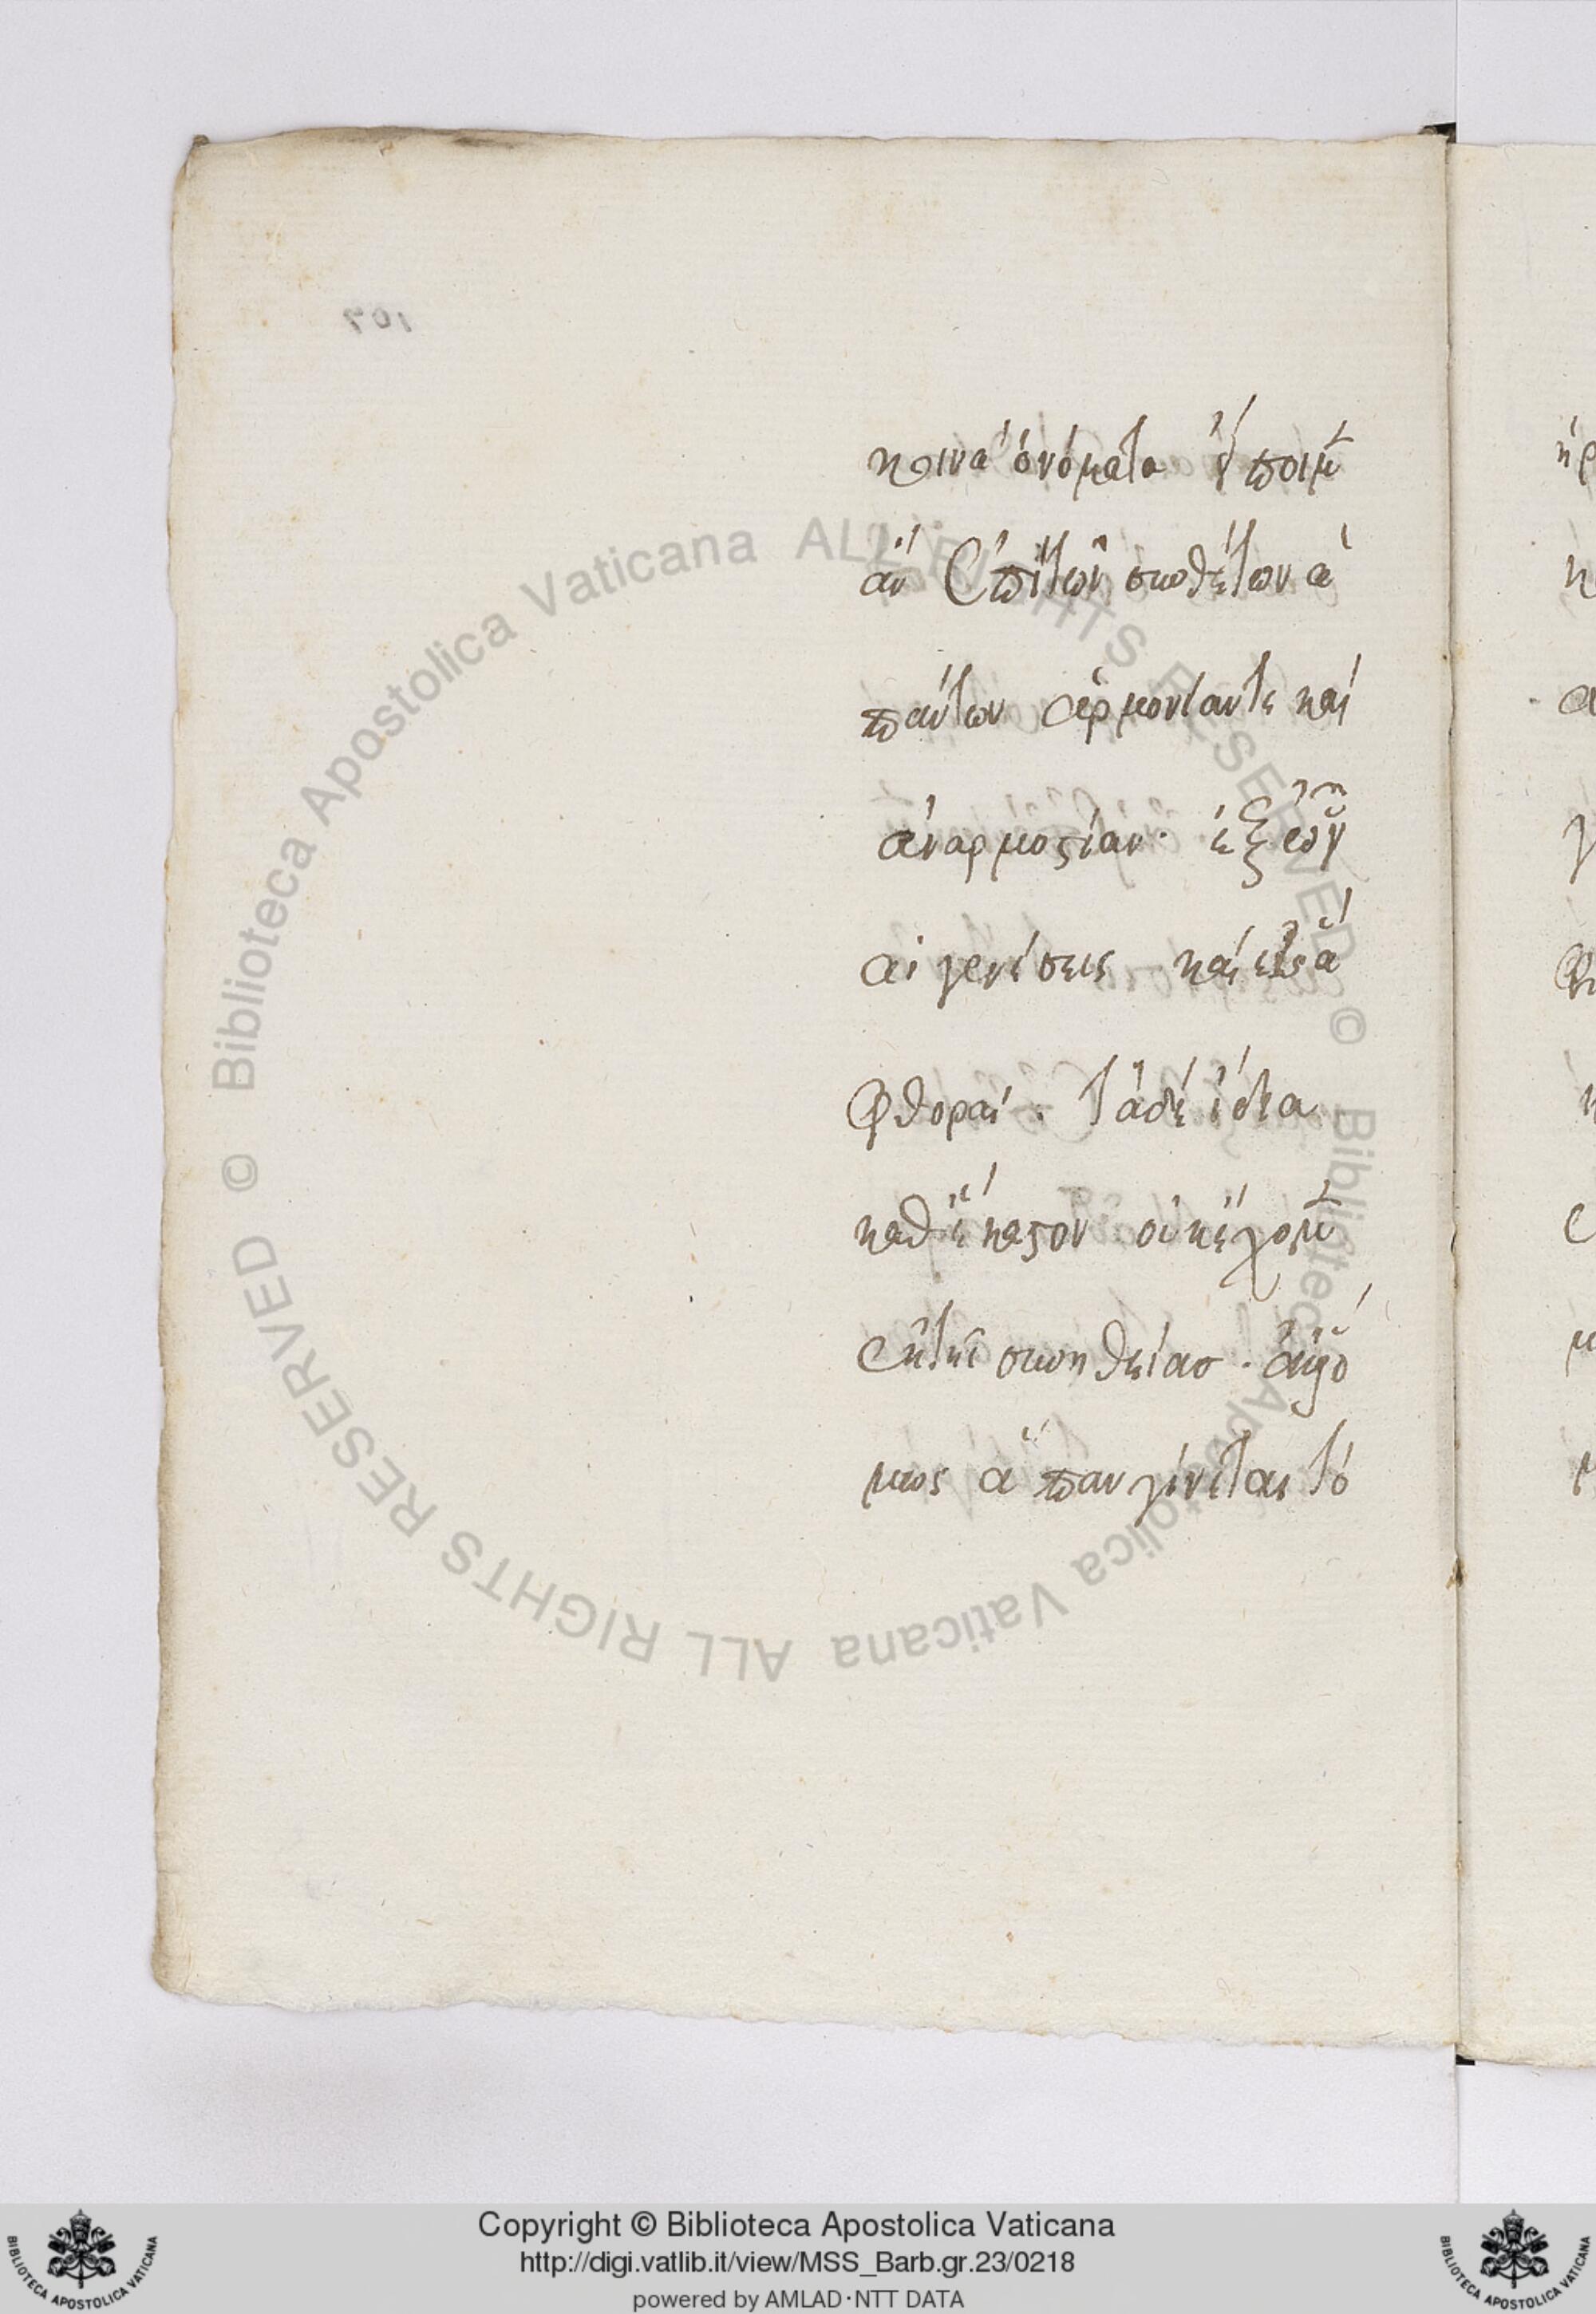 κοινὰ ὀνόματα εἴποιμ̅
ἂν ἐπὶ τῶν συνθέτων ἁ
πάντων ἁρμονίαν τὲ καὶ
ἀναρμοστίαν· ἐξ ὧν
αἱ γενέσεις καὶ εἰς ἃ
φθοραί. τὰ δὲ ἴδια
καθ ἕκαστον οὐκ ἔχομ̅
ἐκ τῆς συνηθείας.
μως ἅπαν γίνεται τὸ
107
© Biblioteca Apostolica Vaticana ALL RIGHTS RESERVED © Biblioteca Apostolica Vaticana ALL RIGHTS RESERVED
Copyright © Biblioteca Apostolica Vaticana
http://digi.vatlib.it/view/MSS_Barb.gr.23/0218
powered by AMLAD·NTT DATA
BIBLIOTECA APOSTOLICA VATICANA
BIBLIOTECA APOSTOLICA VATICANA